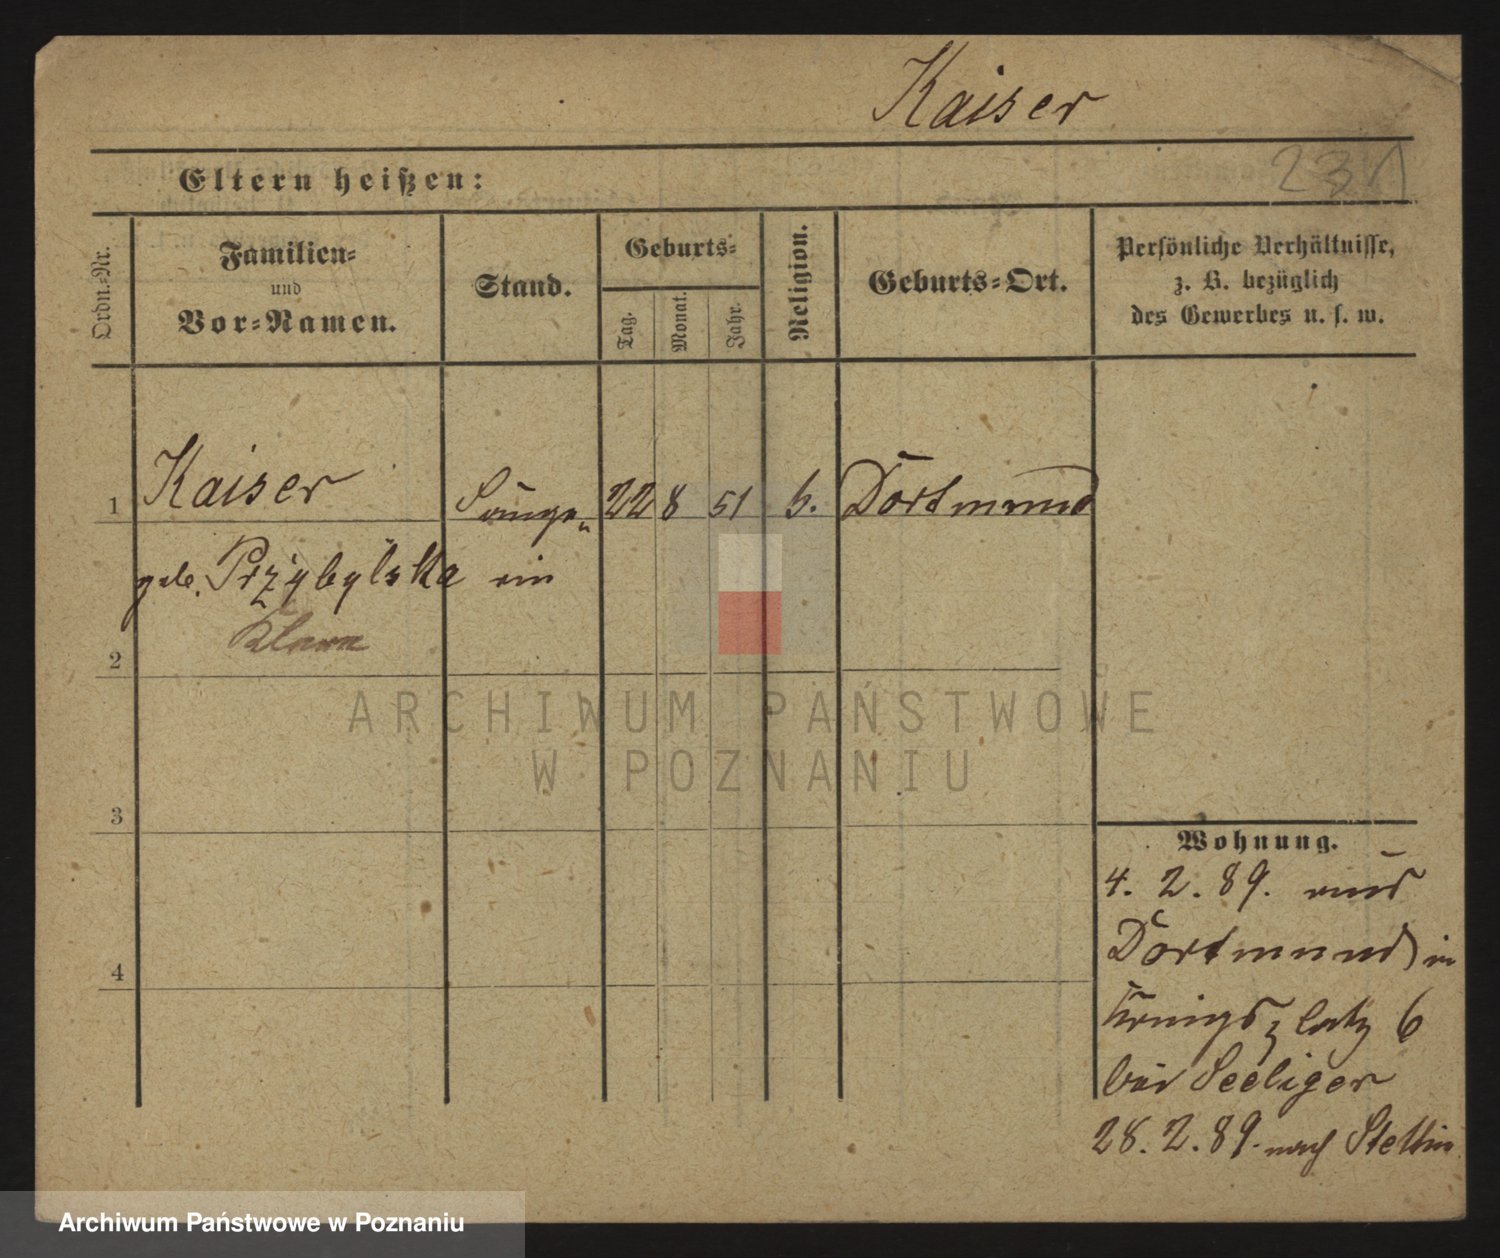 Kaiser
231
Eltern heißen:
Ordn.-Nr.
Familien-
und
Vor-Namen.
Stand.
Geburts-
Tag.
Monat.
Jahr.
Religion.
Geburts-Ort.
Persönliche Verhältnisse,
z. B. bezüglich
des Gewerbes u. s. w.
1 Kaiser Sänge- 22 8 51 Dortmund
geb. Przybylska rin
Klara
2
ARCHIWUM PAŃSTWOWE
W POZNANIU
3
4
Wohnung.
4. 2. 89. aus
Dortmund in
Königsplatz 6
bei Seeliger
28. 2. 89. nach Stettin
Archiwum Państwowe w Poznaniu